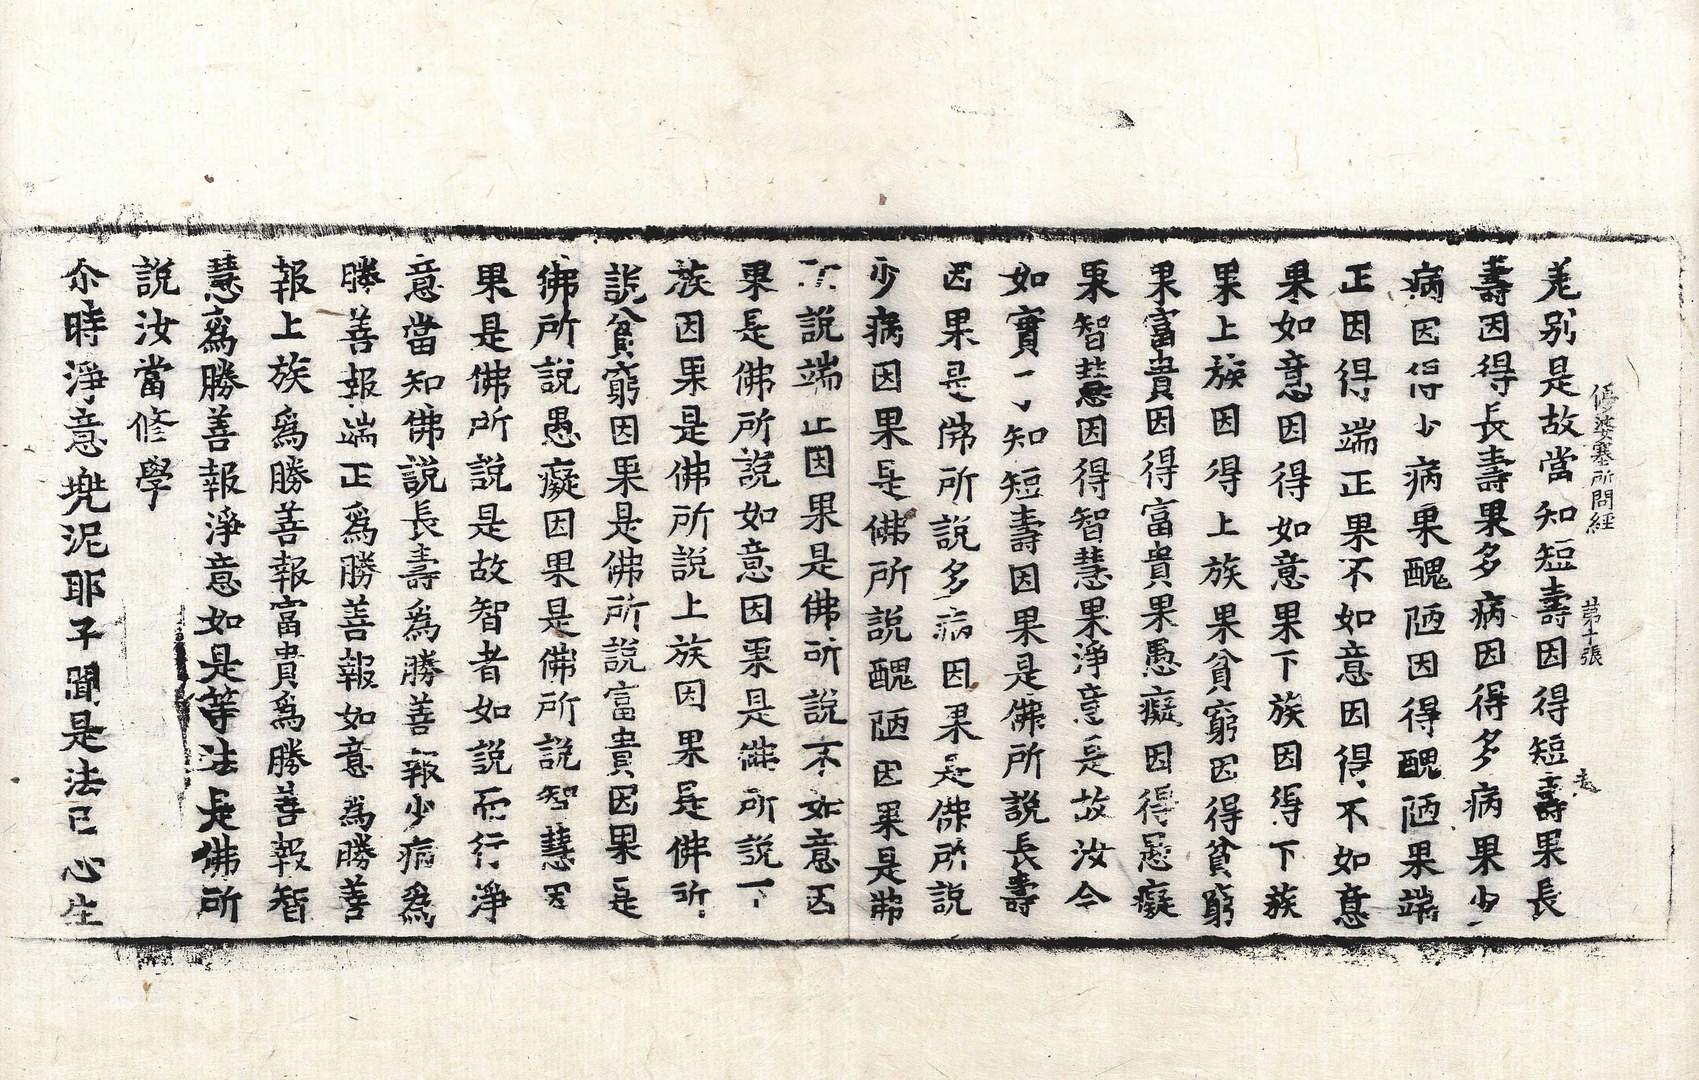 優婆塞所問經 第十張 表
羌别是故當知短壽因得短壽果長
壽因得長壽果多病因得多病果少
病因得少病果醜陋因得醜陋果端
正因得端正果不如意因得不如意
果如意因得如意果下族因得下族
果上族因得上族果貧窮因得貧窮
果富貴因得富貴果愚癡因得愚癡
果智慧因得智慧果淨意是故汝今
如實一一知短壽因果是佛所說長壽
因果是佛所說多病因果是佛所說
少病因果是佛所說醜陋因果是佛
所說端正因果是佛所說不如意因
果是佛所說如意因果是佛所說下
族因果是佛所說上族因果是佛所
說貧窮因果是佛所說富貴因果是
佛所說愚癡因果是佛所說智慧因
果是佛所說是故智者如說而行淨
意當知佛說長壽爲勝善報少病爲
勝善報端正爲勝善報如意爲勝善
報上族爲勝善報富貴爲勝善報智
慧爲勝善報淨意如是等法是佛所
說汝當修學
尒時淨意兠泥耶子聞是法已心生